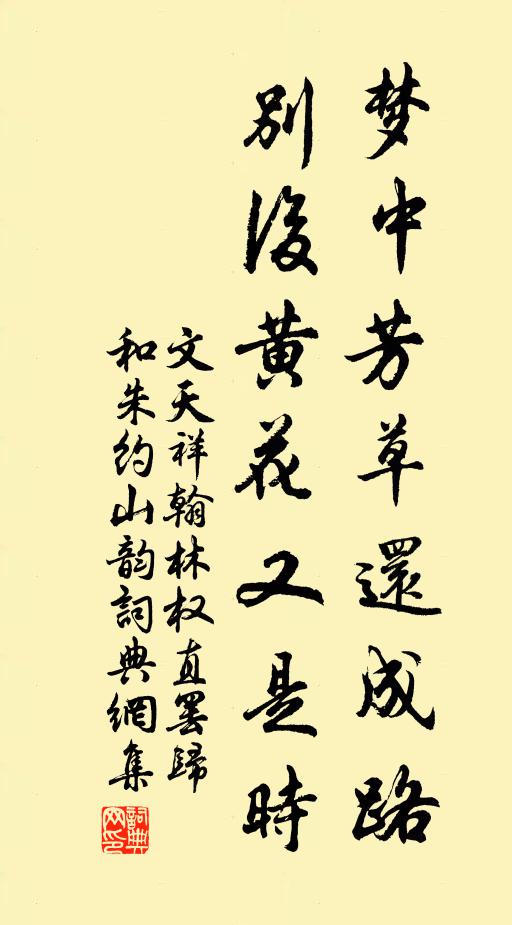 梦中芳草還成路
別後黄花又是時
文天祥翰林权直罢歸
和朱约山韵詞典網集
詞典
网印